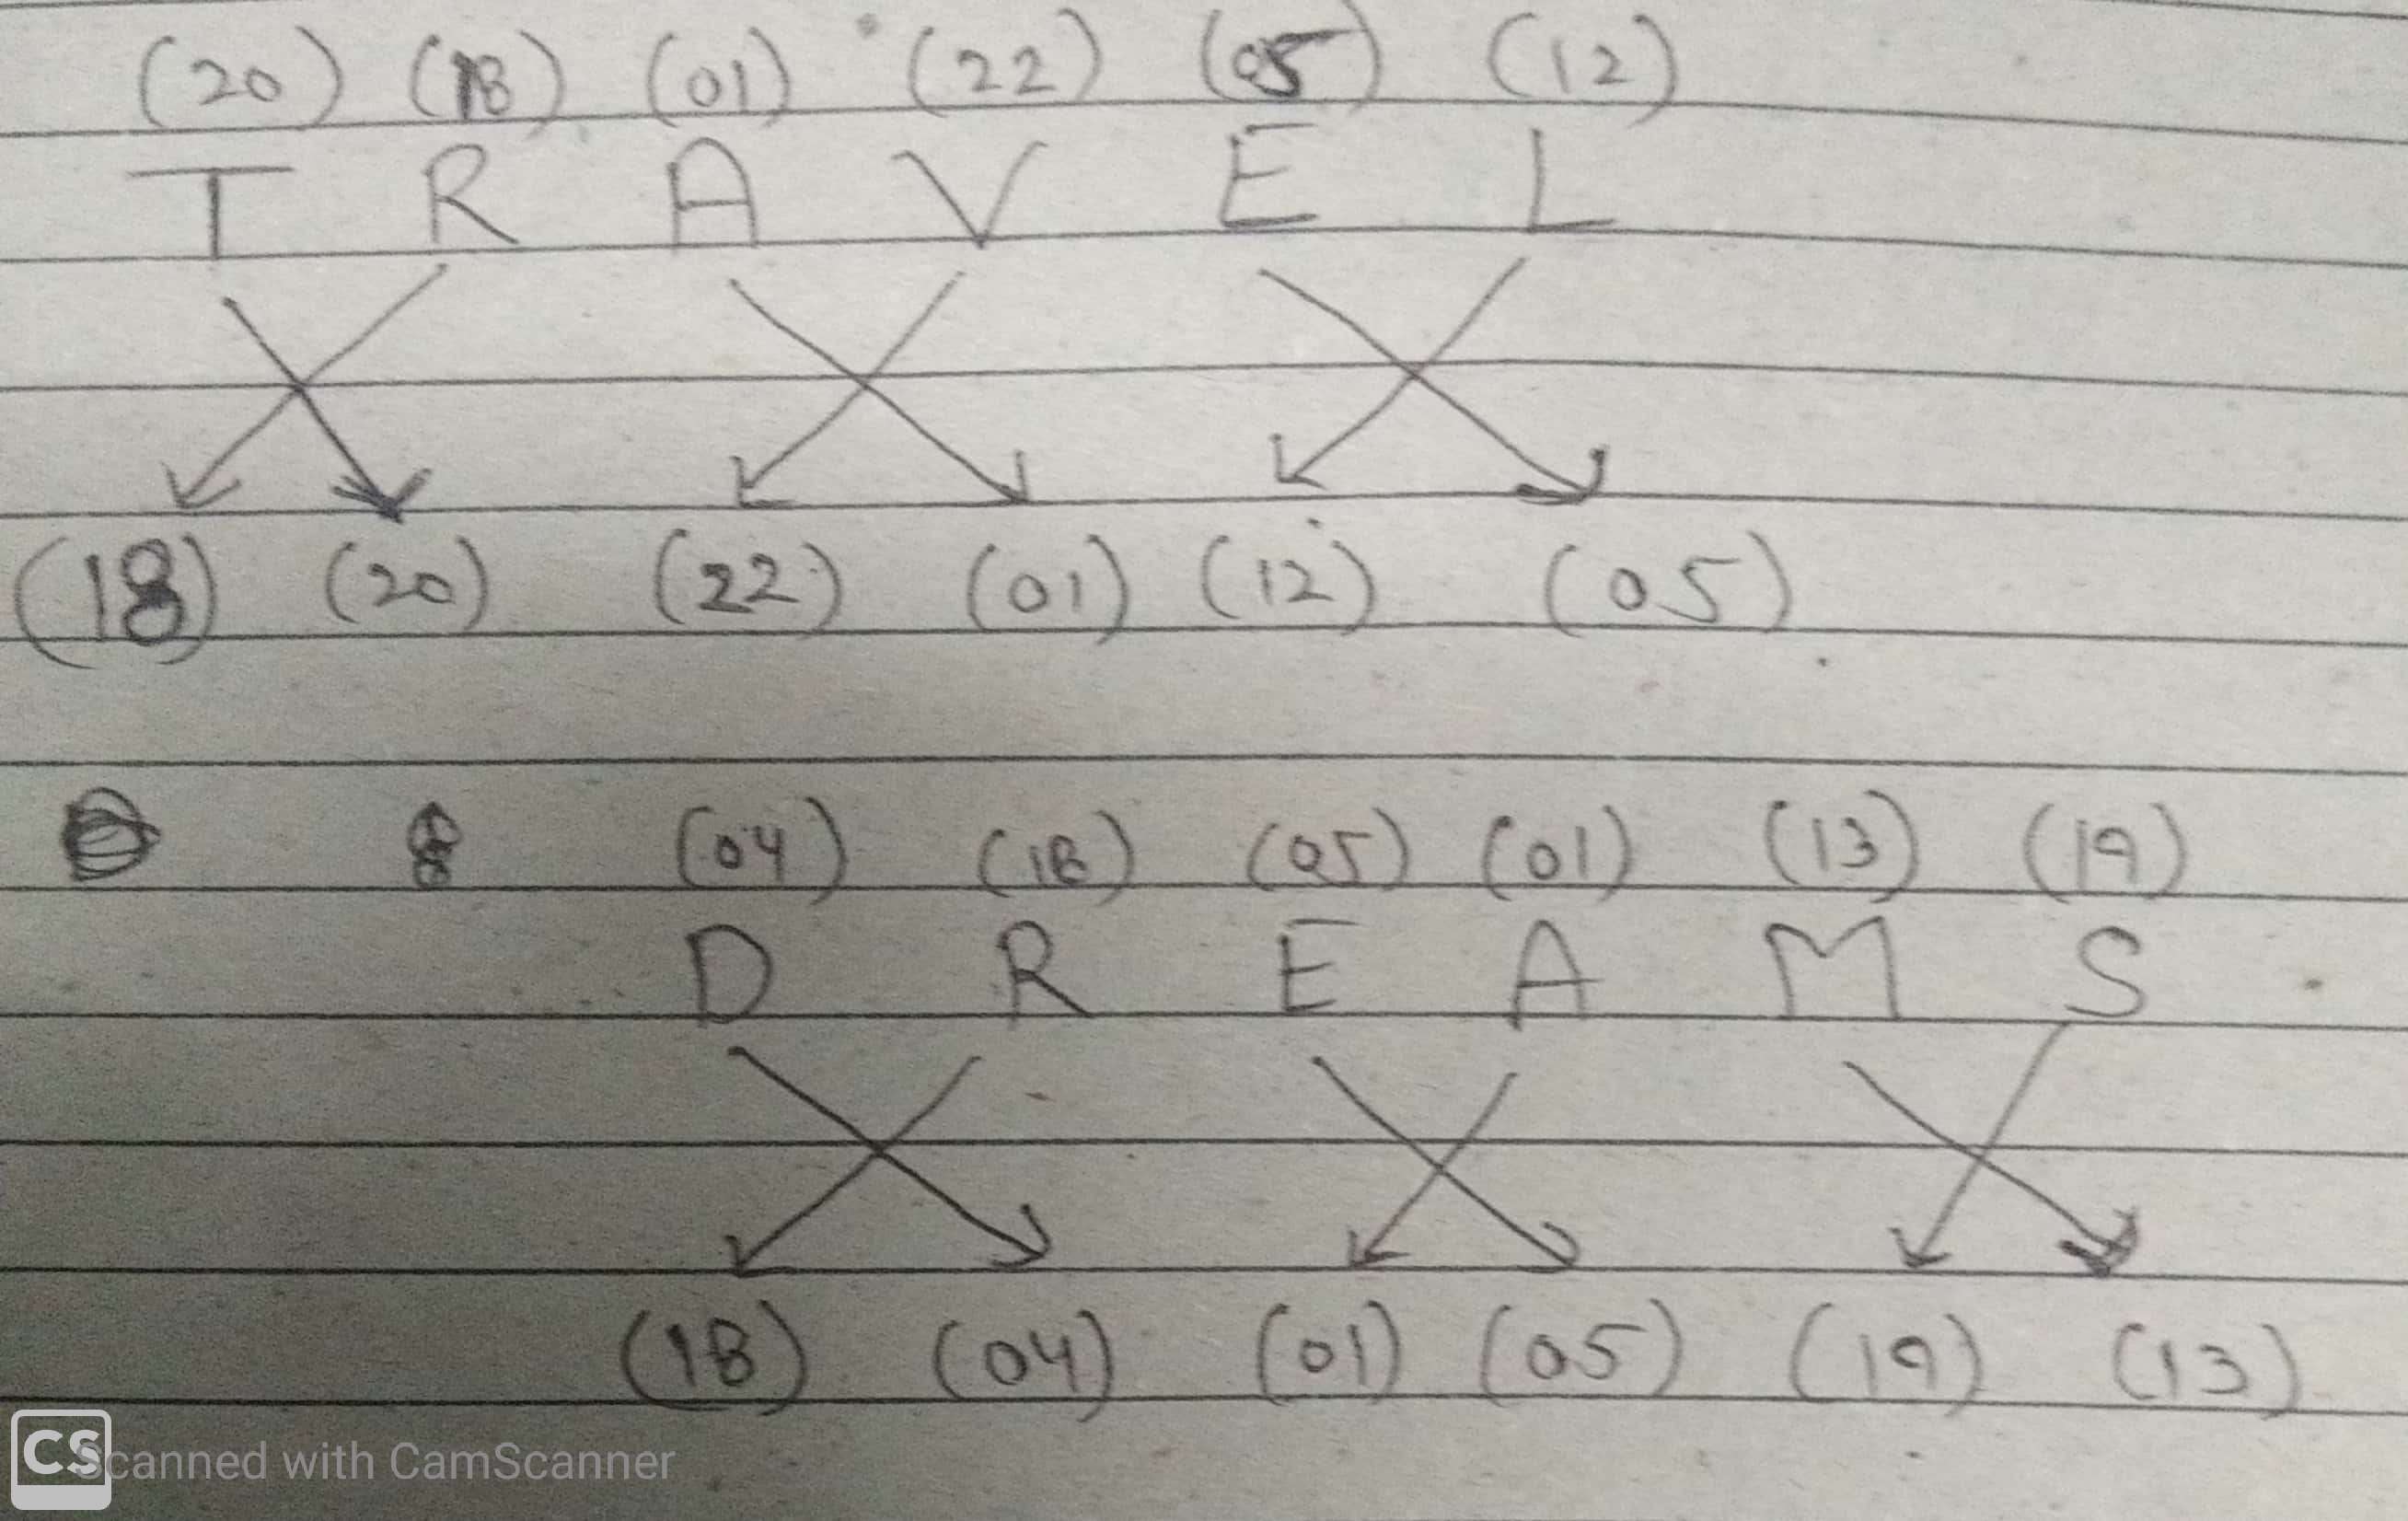 (20) (18) (01) (22) (05) (12)
T R A V E L
(18) (20) (22) (01) (12) (05)
(04) (18) (05) (01) (13) (19)
D R E A M S
(18) (04) (01) (05) (19) (13)
CS Scanned with CamScanner